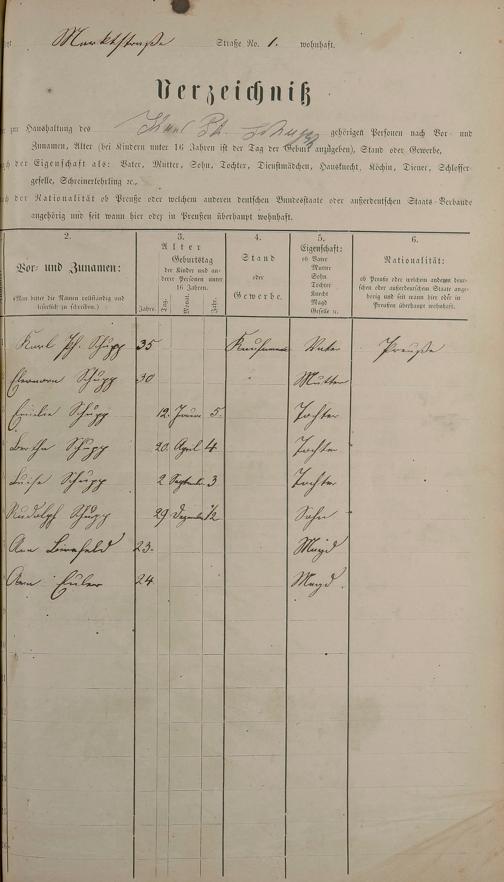 Marktstraße Straße No. 1. wohnhaft.
Verzeichniß
zur Haushaltung des Karl Ph. Schupp gehörigen Personen nach Vor- und
Zunamen, Alter (bei Kindern unter 16 Jahren ist der Tag der Geburt anzugeben), Stand oder Gewerbe,
nach der Eigenschaft als: Vater, Mutter, Sohn, Tochter, Dienstmädchen, Hausknecht, Köchin, Diener, Schlosser-
geselle, Schreinerlehrling ꝛc.,
nach der Nationalität ob Preuße oder welchem anderen deutschen Bundesstaate oder außerdeutschen Staats-Verbande
angehörig und seit wann hier oder in Preußen überhaupt wohnhaft.
2. 3. 4. 5. 6.
Vor- und Zunamen:
(Man bittet die Namen vollständig und
leserlich zu schreiben.)
Alter
Geburtstag
der Kinder und an-
derer Personen unter
16 Jahren.
Jahre. Tag. Monat. Jahr.
Stand
oder
Gewerbe.
Eigenschaft:
ob Vater
Mutter
Sohn
Tochter
Knecht
Magd
Geselle ꝛc.
Nationalität:
ob Preuße oder welchem anderen deut-
schen oder außerdeutschen Staate ange-
hörig und seit wann hier oder in
Preußen überhaupt wohnhaft.
Karl Ph. Schupp 35 Kaufmann Vater Preuße
Eleonora Schupp 30 Mutter
Emilie Schupp 12. 5. Tochter
Bertha Schupp 20. April 4. Tochter
Luise Schupp 2 September 3 Tochter
Rudolph Schupp 29 Dezember 1/2 Sohn
Ann Birnfeld 23. Magd
Ann Euler 24 Magd